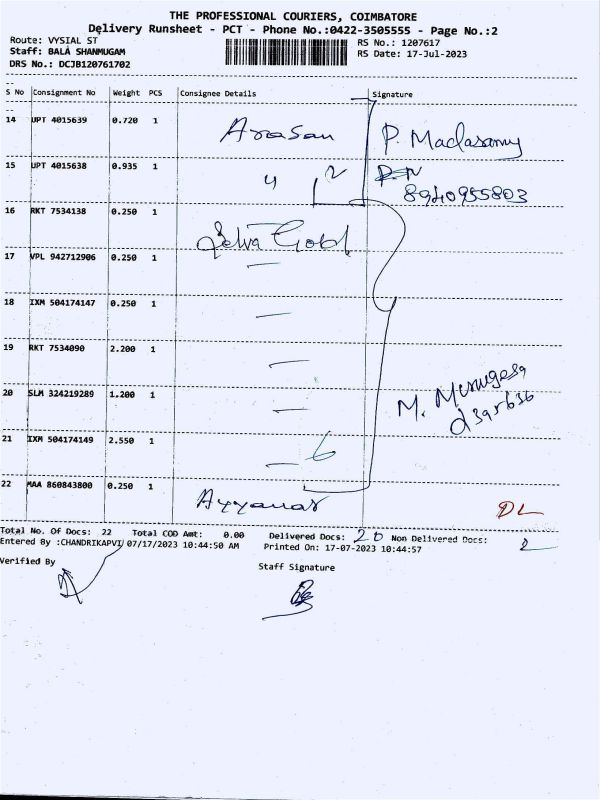 THE PROFESSIONAL COURIERS, COIMBATORE
Delivery Runsheet - PCT - Phone No.:0422-3505555 - Page No.:2
Route: VYSIAL ST RS No.: 1207617
Staff: BALA SHANMUGAM RS Date: 17-Jul-2023
DRS No.: DCJB120761702
S No Consignment No Weight PCS Consignee Details Signature
14 UPT 4015639 0.720 1 Arasan P. Madasamy
15 UPT 4015638 0.935 1 4 2
8940955803
16 RKT 7534138 0.250 1 Selva Gobl
17 VPL 942712906 0.250 1 —
18 IXM 504174147 0.250 1 —
19 RKT 7534090 2.200 1 —
20 SLM 324219289 1.200 1 — M. Murugesa
21 IXM 504174149 2.550 1 — 6
22 MAA 860843800 0.250 1 Ayyanar DL
Total No. Of Docs: 22 Total COD Amt: 0.00 Delivered Docs: 20 Non Delivered Docs: 2
Entered By :CHANDRIKAPVI/ 07/17/2023 10:44:50 AM Printed On: 17-07-2023 10:44:57
Verified By Staff Signature